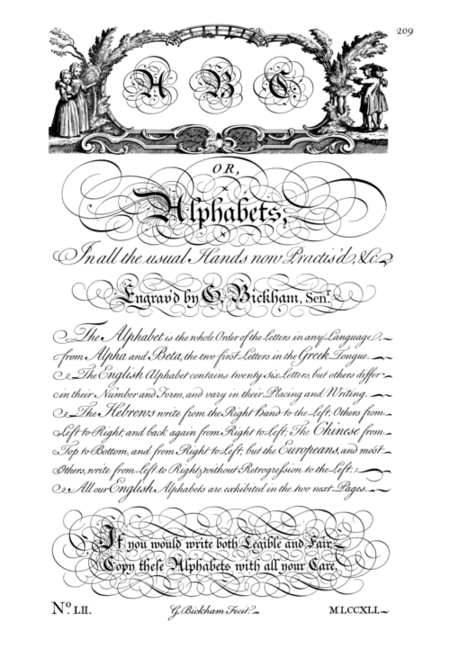 209
A B C
OR,
Alphabets,
In all the usual Hands now Practis'd, &c.
Engrav'd by G. Bickham, Senr.
The Alphabet is the whole Order of the Letters in any Language,
from Alpha and Beta, the two first Letters in the Greek Tongue.
The English Alphabet contains twenty six Letters, but others differ
in their Number and Form, and vary in their Placing and Writing.
The Hebrews write from the Right hand to the Left; Others from
Left to Right, and back again from Right to Left; The Chinese from
Top to Bottom, and from Right to Left; but the Europeans, and most
Others, write from Left to Right, without Retrogression to the Left.
All our English Alphabets are exhibited in the two next Pages.
If you would write both Legible and Fair,
Copy these Alphabets with all your Care.
No. LII.
G. Bickham Fecit.
MLCCXLI